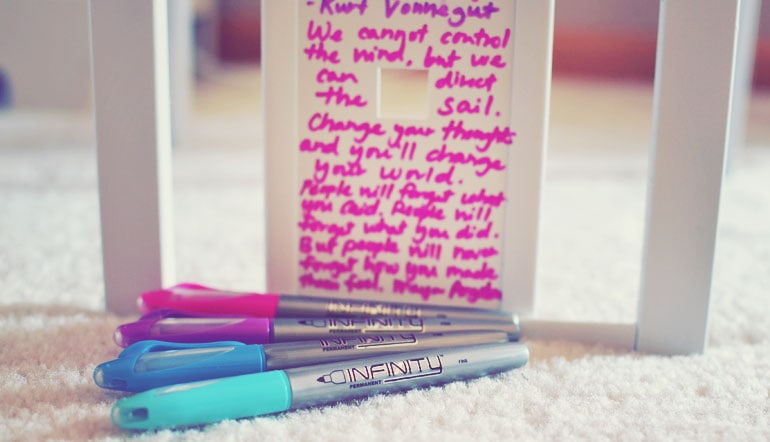 - Kurt Vonnegut
We cannot control
the wind, but we
can direct
the sail.
Change your thoughts
and you'll change
your world.
People will forget what
you said, People will
forget what you did.
But people will never
forget how you made
them feel. Maya Angelou
INFINITY
INFINITY FINE
PERMANENT
INFINITY™ FINE
PERMANENT